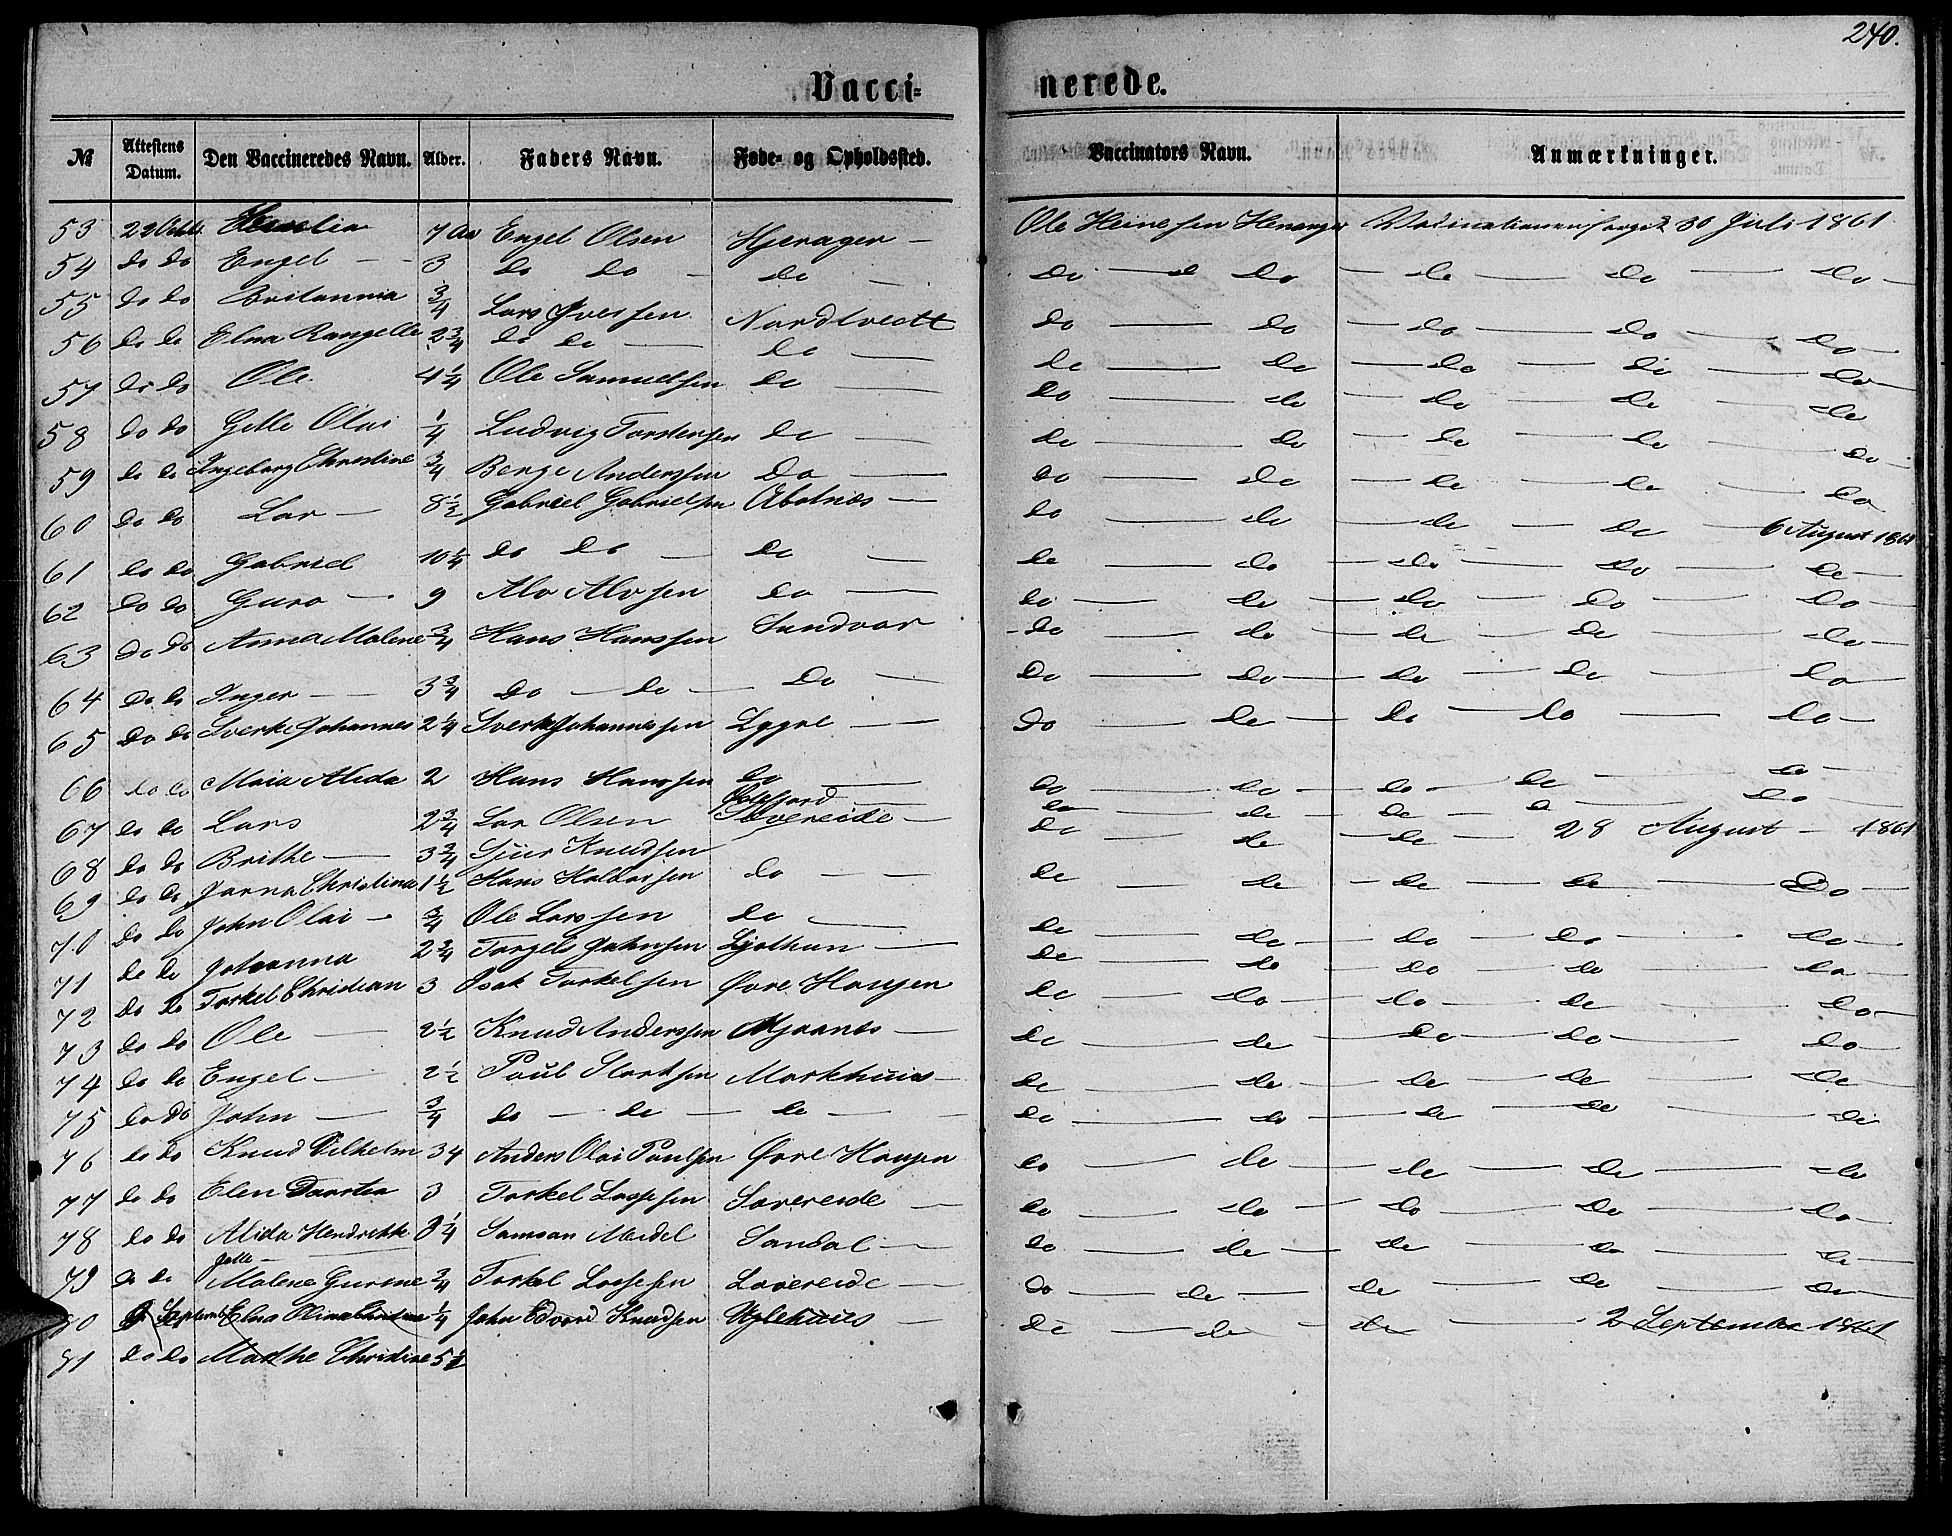 240.
Vacci=nerede.
№ Attestens Datum. Den Vaccineredes Navn. Alder. Faders Navn. Føde- og Opholdssted. Vaccinators Navn. Anmærkninger.
53 22 Octb. 7 Aar Engel Olsen Hjerager — Ole Heinesen Henanger 30 Juli 1861
54 do do Engel — 3 do do — do — do — do — do — do — do
55 do do Britannia 3/4 Lars Iversen Nordtveitt do — do — do — do — do
56 do do Elna Rangelle 2 3/4 do do — do — de — do — do — do — do
57 do do Ole 4 1/4 Ole Samuelsen do — do — do — do — do — do
58 do do Gelle Olai 1/4 Ludvig Torstensen do — do — do — do — do — do
59 do do Ingeborg Christine 3/4 Berge Anderssen do — do — do — do — do — do
60 do do Lar — 8 1/2 Gabriel Gabrielsen Abotnæs — do — do — do — do — 6 August 1861
61 do do Gabriel 10 1/4 do do — do — do — do — do — do — do
62 do do Guro — 9 Alv Alvsen do — do — do — do — do — do
63 do do Anna Malene 3/4 Hans Hanssen Sandvor do — do — do — do — do
64 do do Inger — 3 3/4 do — do — do — do — do — do — do — do
65 do do Sverke Johannes 2 1/4 Sverke Johannessen Lygre — do — do — do — do — do
66 do do Maia Alida 2 Hans Hanssen do — do — do — do — do — do
67 do do Lars 2 3/4 Lar Olsen do — do — do — do — do
68 do do Brithe — 3 3/4 Sjur Knudsen Sævereide — do — do — do — 28 August — 1861
69 do do Jorna Christina 1 1/2 Hans Halvorsen do — do — do — do — do — do
70 do do John Olai — 3/4 Ole Larssen do — do — do — do — do — do
71 do do Johanna 2 3/4 Torgels Johnsen Ljothun — do — do — do — do — do
72 do do Torkel Christian 3 Isak Torkelsen Øvre Haugen do — do — do — do — do
73 do do Ole — 2 1/2 Knud Anderssen — do — do — do — do — do
74 do do Engel — 2 1/2 Poul Markhuus — do — do — do — do — do
75 do do John — 3/4 do — do — do — do — do — do — do — do
76 do do Knud Vilhelm 34 Anders Olai Poulsen Øvre Haugen do — do — do — do — do
77 do do Elen Daartea 3 Torkel Lassesen Sævereide — do — do — do — do — do
78 do do Alida Hendrikke 3 1/4 Samson Meidel Sandal — do — do — do — do — do
79 do do Malene Gurine 3/4 Torkel Lassesen — do — do — do — do — do
80 September Elna Olina 1/4 John Edvard Knudsen — do — do — do — 2 September 1861
81 do do Marthe Christine 5 1/2